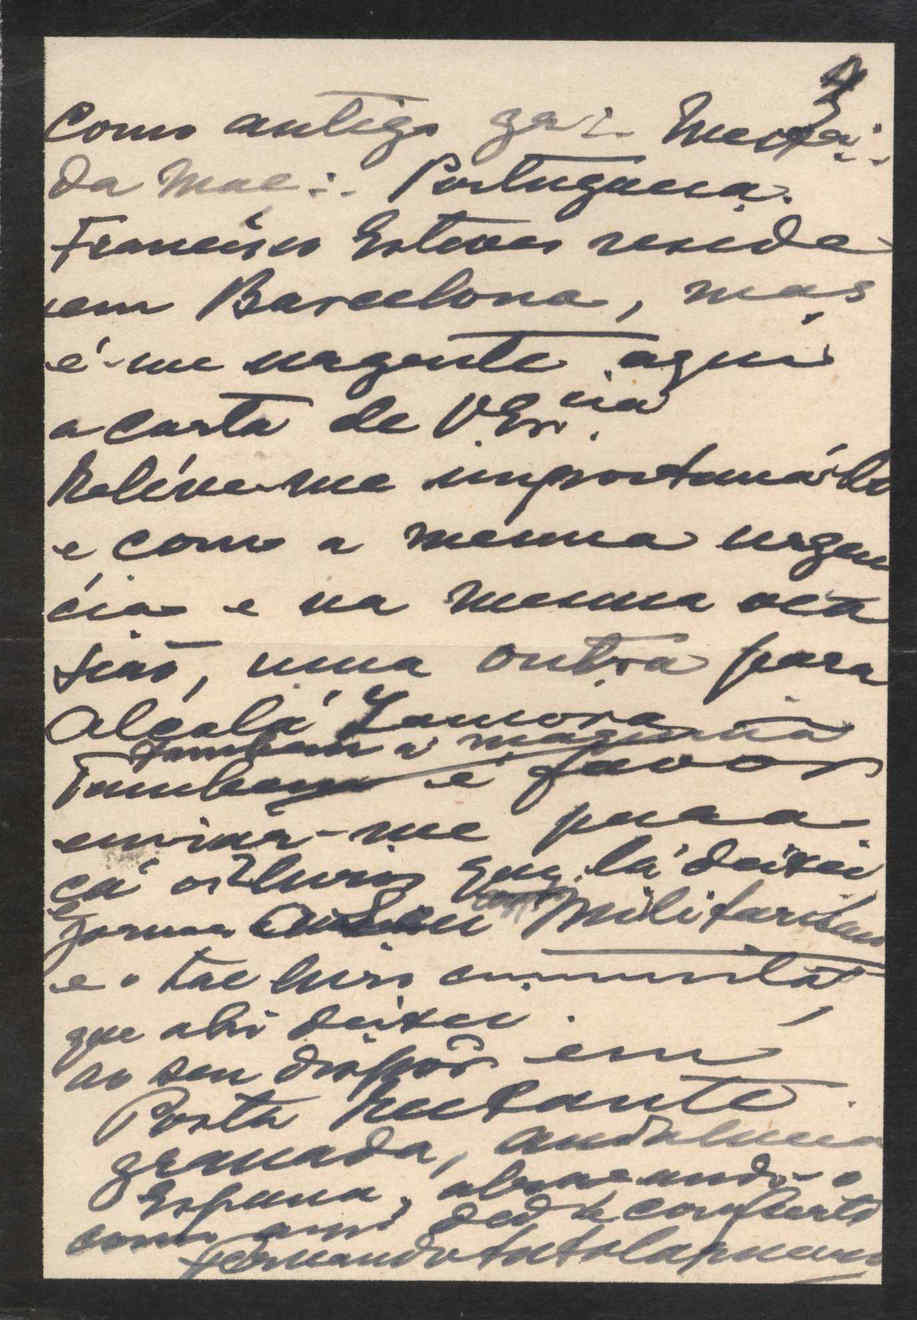 como antigo
da Maç∴ Portuguesa.
Francisco Esteves reside
em Barcelona, mas
é-me urgente aqui
a carta de V. Ex.cia
Reléve-me importuná-lo
e com a mesma urgen
cia e na mesma oca
sião, uma outra para
Alcalá Zamora
Tambem a maquina
Tambem é favor
enviár-me para
cá os livros que lá deixei
Militarismo
e o tal livro comunista
que ahi deixei.
ao seu dispôr em
Posta Restante
Granada, Andalucia
Espana, abraçando-o
como am.º ded.º e
Fernando